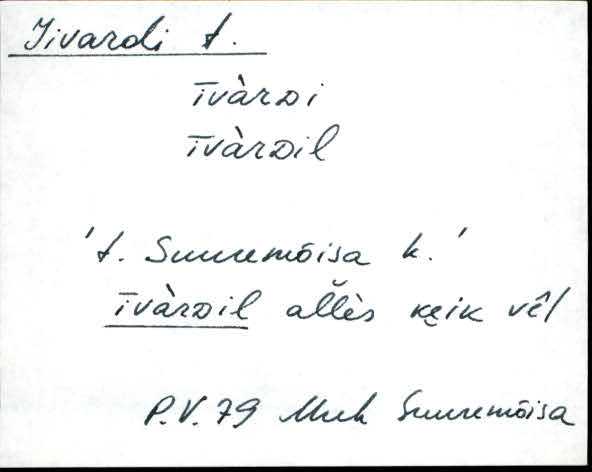 Iivardi t.
īvàrᴅi
īvàrᴅil
't. Suuremõisa k.'
īvàrᴅil al̆l̆ès kęik vêl
P.V. 79 Muh Suuremõisa